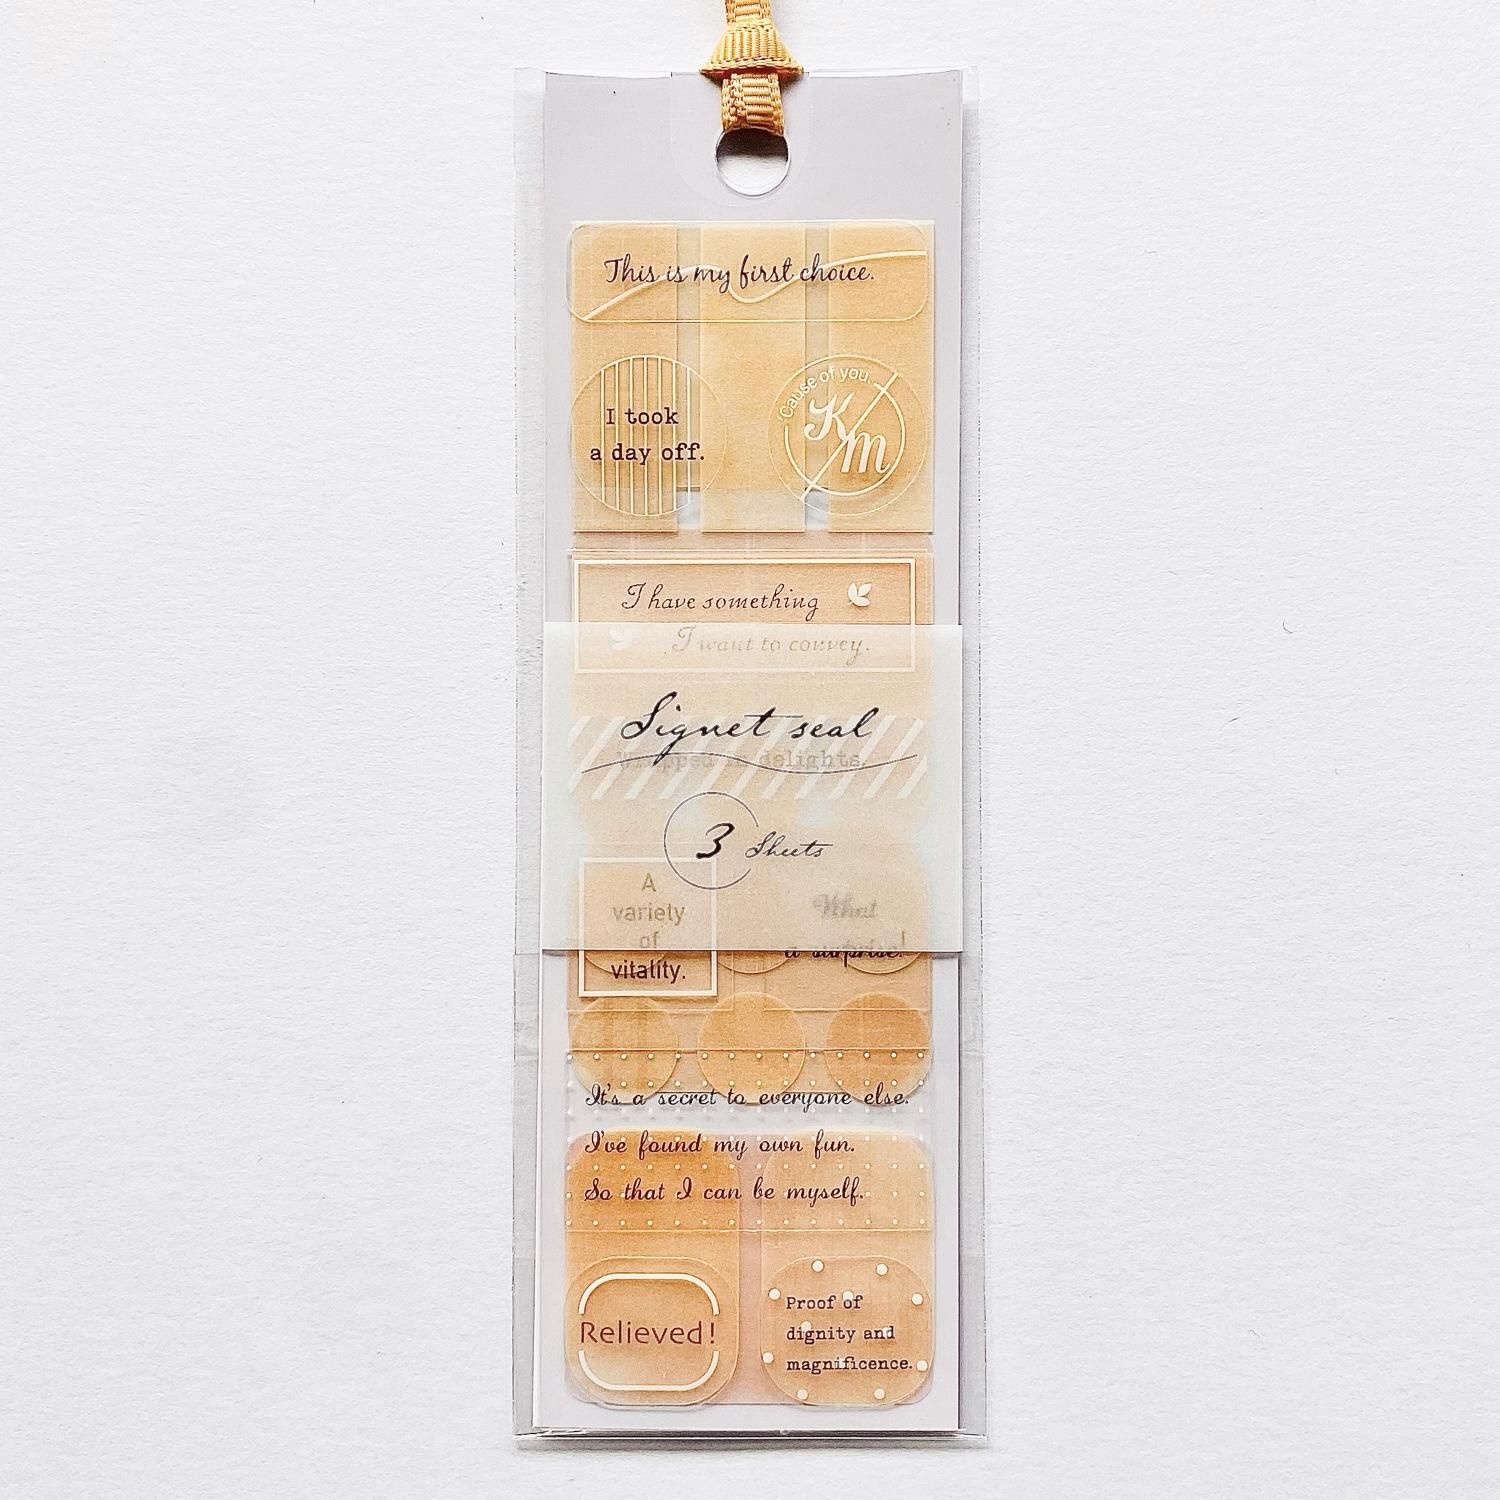 This is my first choice.
I took
a day off.
'Cause of you.
K
m
I have something
I want to convey.
Signet seal
Wrapped in delights.
3 Sheets
A
variety
of
vitality.
What
a surprise!
It's a secret to everyone else.
I've found my own fun.
So that I can be myself.
Relieved!
Proof of
dignity and
magnificence.